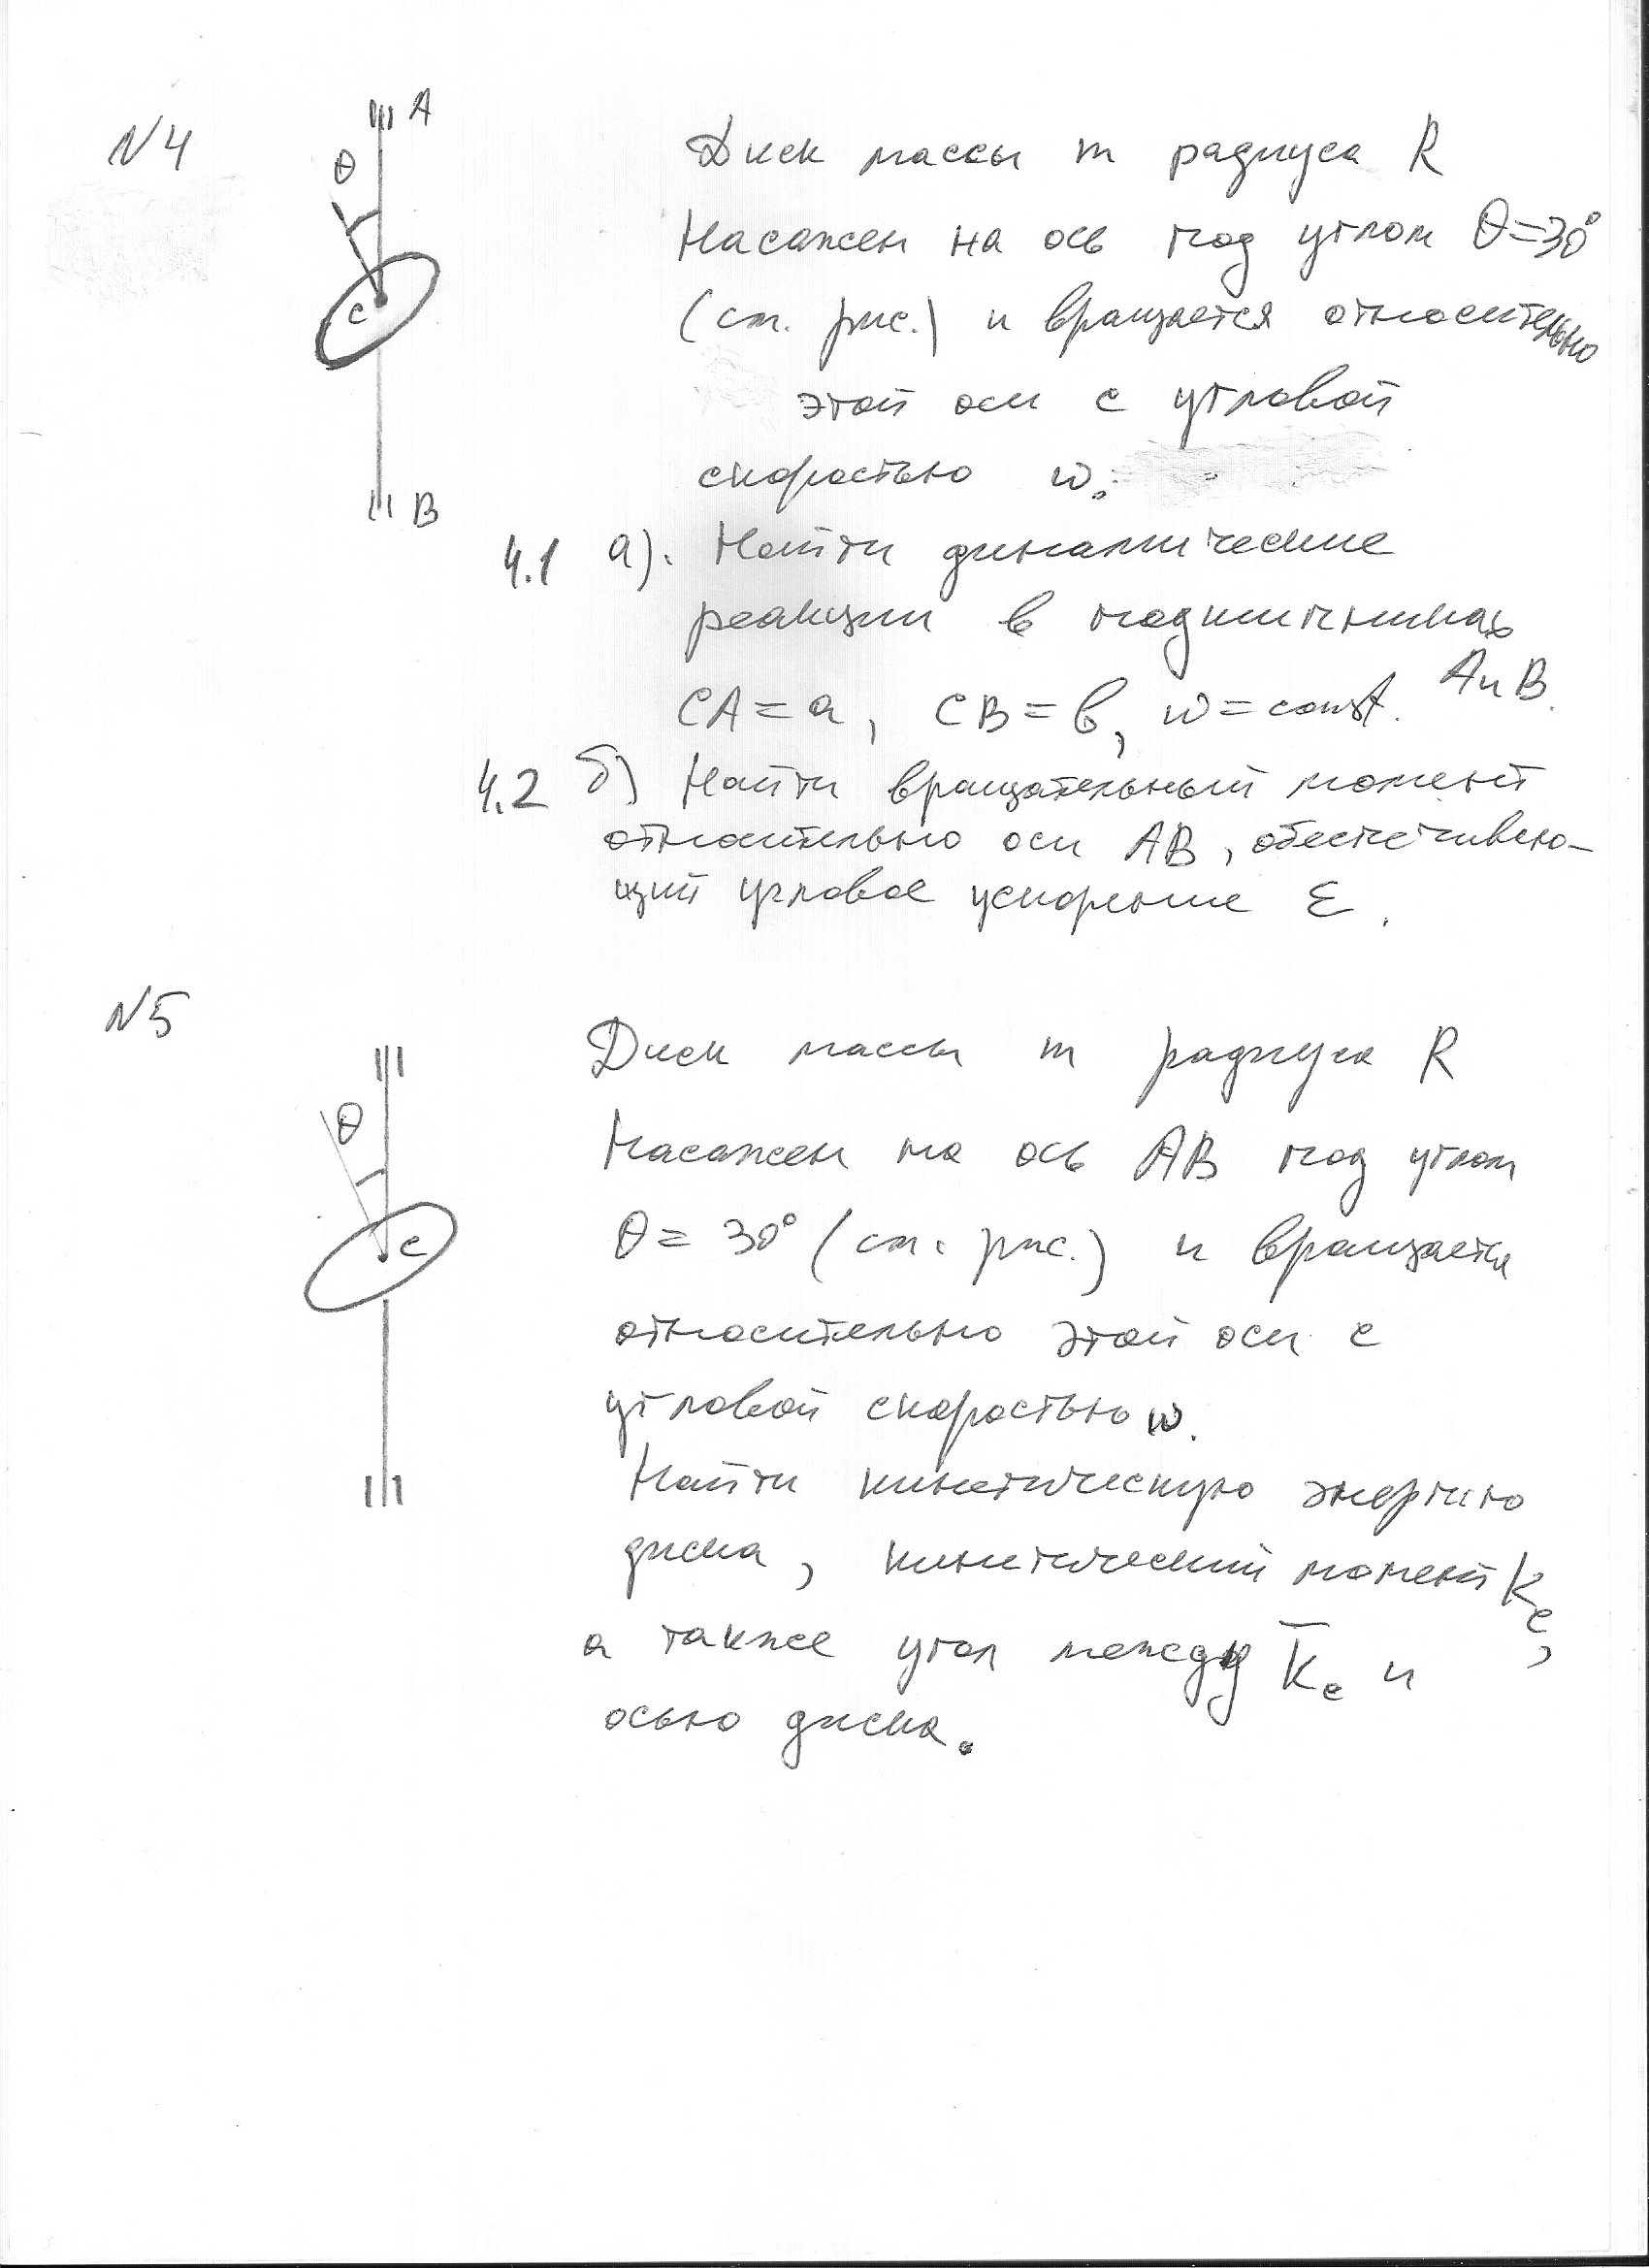 N4
A
θ
C
B
Диск массы m радиуса R
насажен на ось под углом θ=30°
(см. рис.) и вращается относительно
этой оси с угловой
скоростью ω.
4.1 а). Найти динамические
реакции в подшипниках
A и B.
CA = a, CB = b, ω = const.
4.2 б) Найти вращательный момент
относительно оси AB, обеспечиваю-
щий угловое ускорение ε.
N5
θ
C
Диск массы m радиуса R
насажен на ось AB под углом
θ = 30° (см. рис.) и вращается
относительно этой оси с
угловой скоростью ω.
Найти кинетическую энергию
диска, кинетический момент K̄c,
а также угол между K̄c и
осью диска.